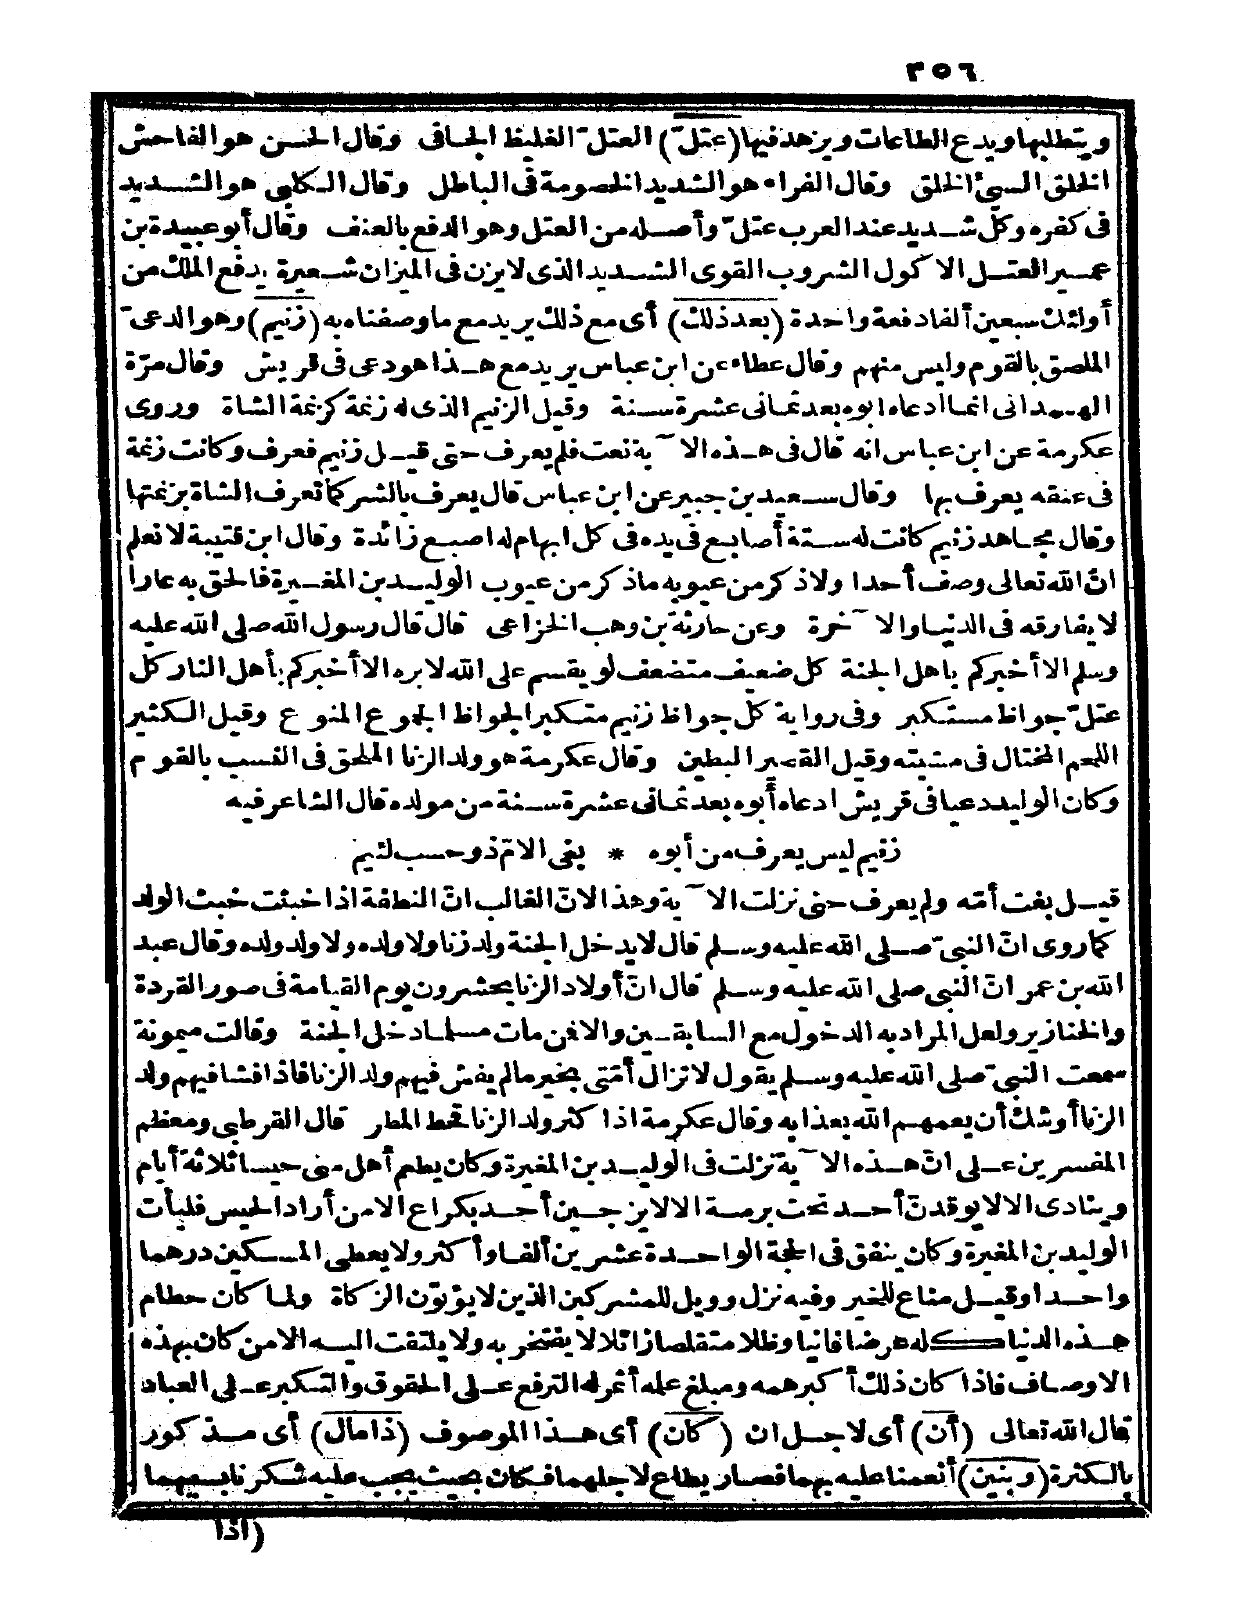 ٣٥٦
ويتطلبها ويدع الطاعات ويزهد فيها (عتلّ) العتلّ الغليظ الجافى وقال الحسن هو الفاحش
الخلق السيئ الخلق وقال الفراء هو الشديد الخصومة فى الباطل وقال الكلبى هو الشديد
فى كفره وكل شديد عند العرب عتلّ وأصله من العتل وهو الدفع بالعنف وقال أبو عبيدة بن
عمير العتل الاكول الشروب القوى الشديد الذى لا يزن فى الميزان شعيرة يدفع الملك من
أولئك سبعين ألفا دفعة واحدة (بعد ذلك) أى مع ذلك يريد مع ما وصفناه به (زنيم) وهو الدعىّ
الملصق بالقوم وليس منهم وقال عطاء عن ابن عباس يريد مع هذا هو دعى فى قريش وقال مرّة
الهمدانى انما ادعاه ابوه بعد ثمانى عشرة سنة وقيل الزنيم الذى له زنمة كزنمة الشاة وروى
عكرمة عن ابن عباس انه قال فى هذه الآية نعت فلم يعرف حتى قيل زنيم فعرف وكانت زنمة
فى عنقه يعرف بها وقال سعيد بن جبير عن ابن عباس قال يعرف بالشر كما تعرف الشاة بزنمتها
وقال مجاهد زنيم كانت له ستة أصابع فى يده فى كل ابهام له اصبع زائدة وقال ابن قتيبة لا نعلم
انّ الله تعالى وصف أحدا ولا ذكر من عيوبه ما ذكر من عيوب الوليد بن المغيرة فالحق به عارا
لا يفارقه فى الدنيا والآخرة وعن حارثة بن وهب الخزاعى قال قال رسول الله صلى الله عليه
وسلم الا أخبركم باهل الجنة كل ضعيف متضعف لو يقسم على الله لابره الا أخبركم بأهل النار كل
عتلّ جواظ مستكبر وفى رواية كل جواظ زنيم متكبر الجواظ الجموع المنوع وقيل الكثير
اللحم المختال فى مشيته وقيل القصير البطين وقال عكرمة هو ولد الزنا الملحق فى النسب بالقوم
وكان الوليد دعيا فى قريش ادعاه أبوه بعد ثمانى عشرة سنة من مولده قال الشاعر فيه
زنيم ليس يعرف من أبوه * بغى الامّ ذو حسب لئيم
قيل بغت أمّه ولم يعرف حتى نزلت الآية وهذا لانّ الغالب انّ النطفة اذا خبثت خبث الولد
كما روى انّ النبىّ صلى الله عليه وسلم قال لا يدخل الجنة ولد زنا ولا ولده ولا ولد ولده وقال عبد
الله بن عمر انّ النبى صلى الله عليه وسلم قال انّ أولاد الزنا يحشرون يوم القيامة فى صور القردة
والخنازير ولعل المراد به الدخول مع السابقين والا فمن مات مسلما دخل الجنة وقالت ميمونة
سمعت النبىّ صلى الله عليه وسلم يقول لا تزال أمّتى بخير ما لم يفش فيهم ولد الزنا فاذا فشا فيهم ولد
الزنا أوشك أن يعمهم الله بعذابه وقال عكرمة اذا كثر ولد الزنا قحط المطر قال القرطبى ومعظم
المفسرين على انّ هذه الآية نزلت فى الوليد بن المغيرة وكان يطعم أهل منى حيسا ثلاثة أيام
وينادى الا لا يوقدنّ أحد تحت برمة الا لا يزجين أحد بكراع الا من أراد الحيس فليأت
الوليد بن المغيرة وكان ينفق فى الحجة الواحدة عشرين ألفا وأكثر ولا يعطى المسكين درهما
واحدا وقيل مناع للخير وفيه نزل وويل للمشركين الذين لا يؤتون الزكاة ولما كان حطام
هذه الدنيا كله عرضا فانيا وظلا متقلصا زائلا لا يفتخر به ولا يلتفت اليه الا من كان بهذه
الاوصاف فاذا كان ذلك أكبر همه ومبلغ علمه أثمر له الترفع على الحقوق والتكبر على العباد
قال الله تعالى (أن) أى لاجل ان (كان) أى هذا الموصوف (ذا مال) أى مذكور
بالكثرة (وبنين) أنعمنا عليه بهما فصار يطاع لاجلهما فكان بحيث يجب عليه شكرنا بسببهما
(اذا